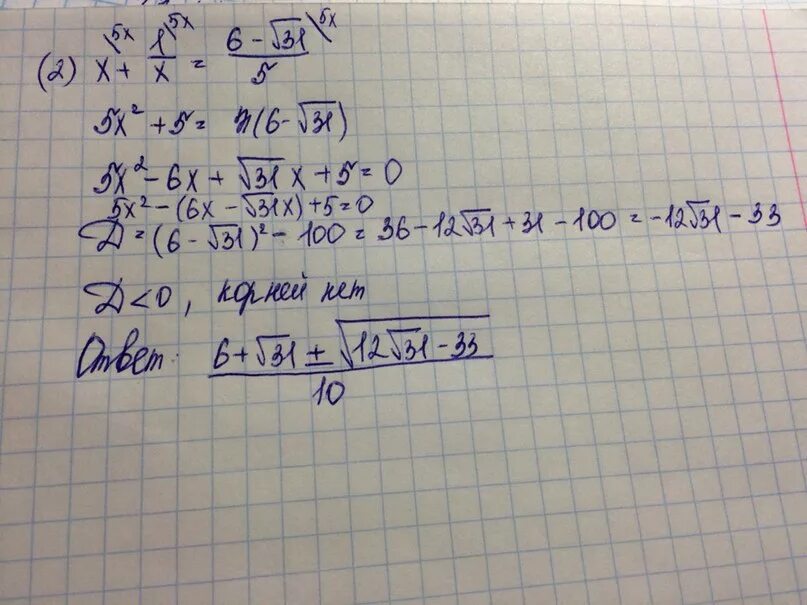 (2) x\5x + 1/x\5x = (6 - √31)/5\5x
5x² + 5 = x(6 - √31)
5x² - 6x + √31 x + 5 = 0
5x² - (6x - √31x) + 5 = 0
D = (6 - √31)² - 100 = 36 - 12√31 + 31 - 100 = -12√31 - 33
D < 0, корней нет
Ответ: (6 + √31 ± √(12√31 - 33))/10